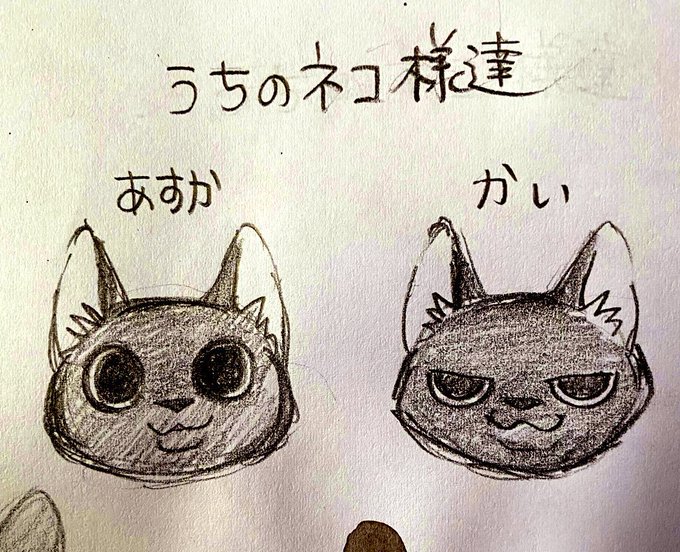 うちのネコ様達
あすか
かい